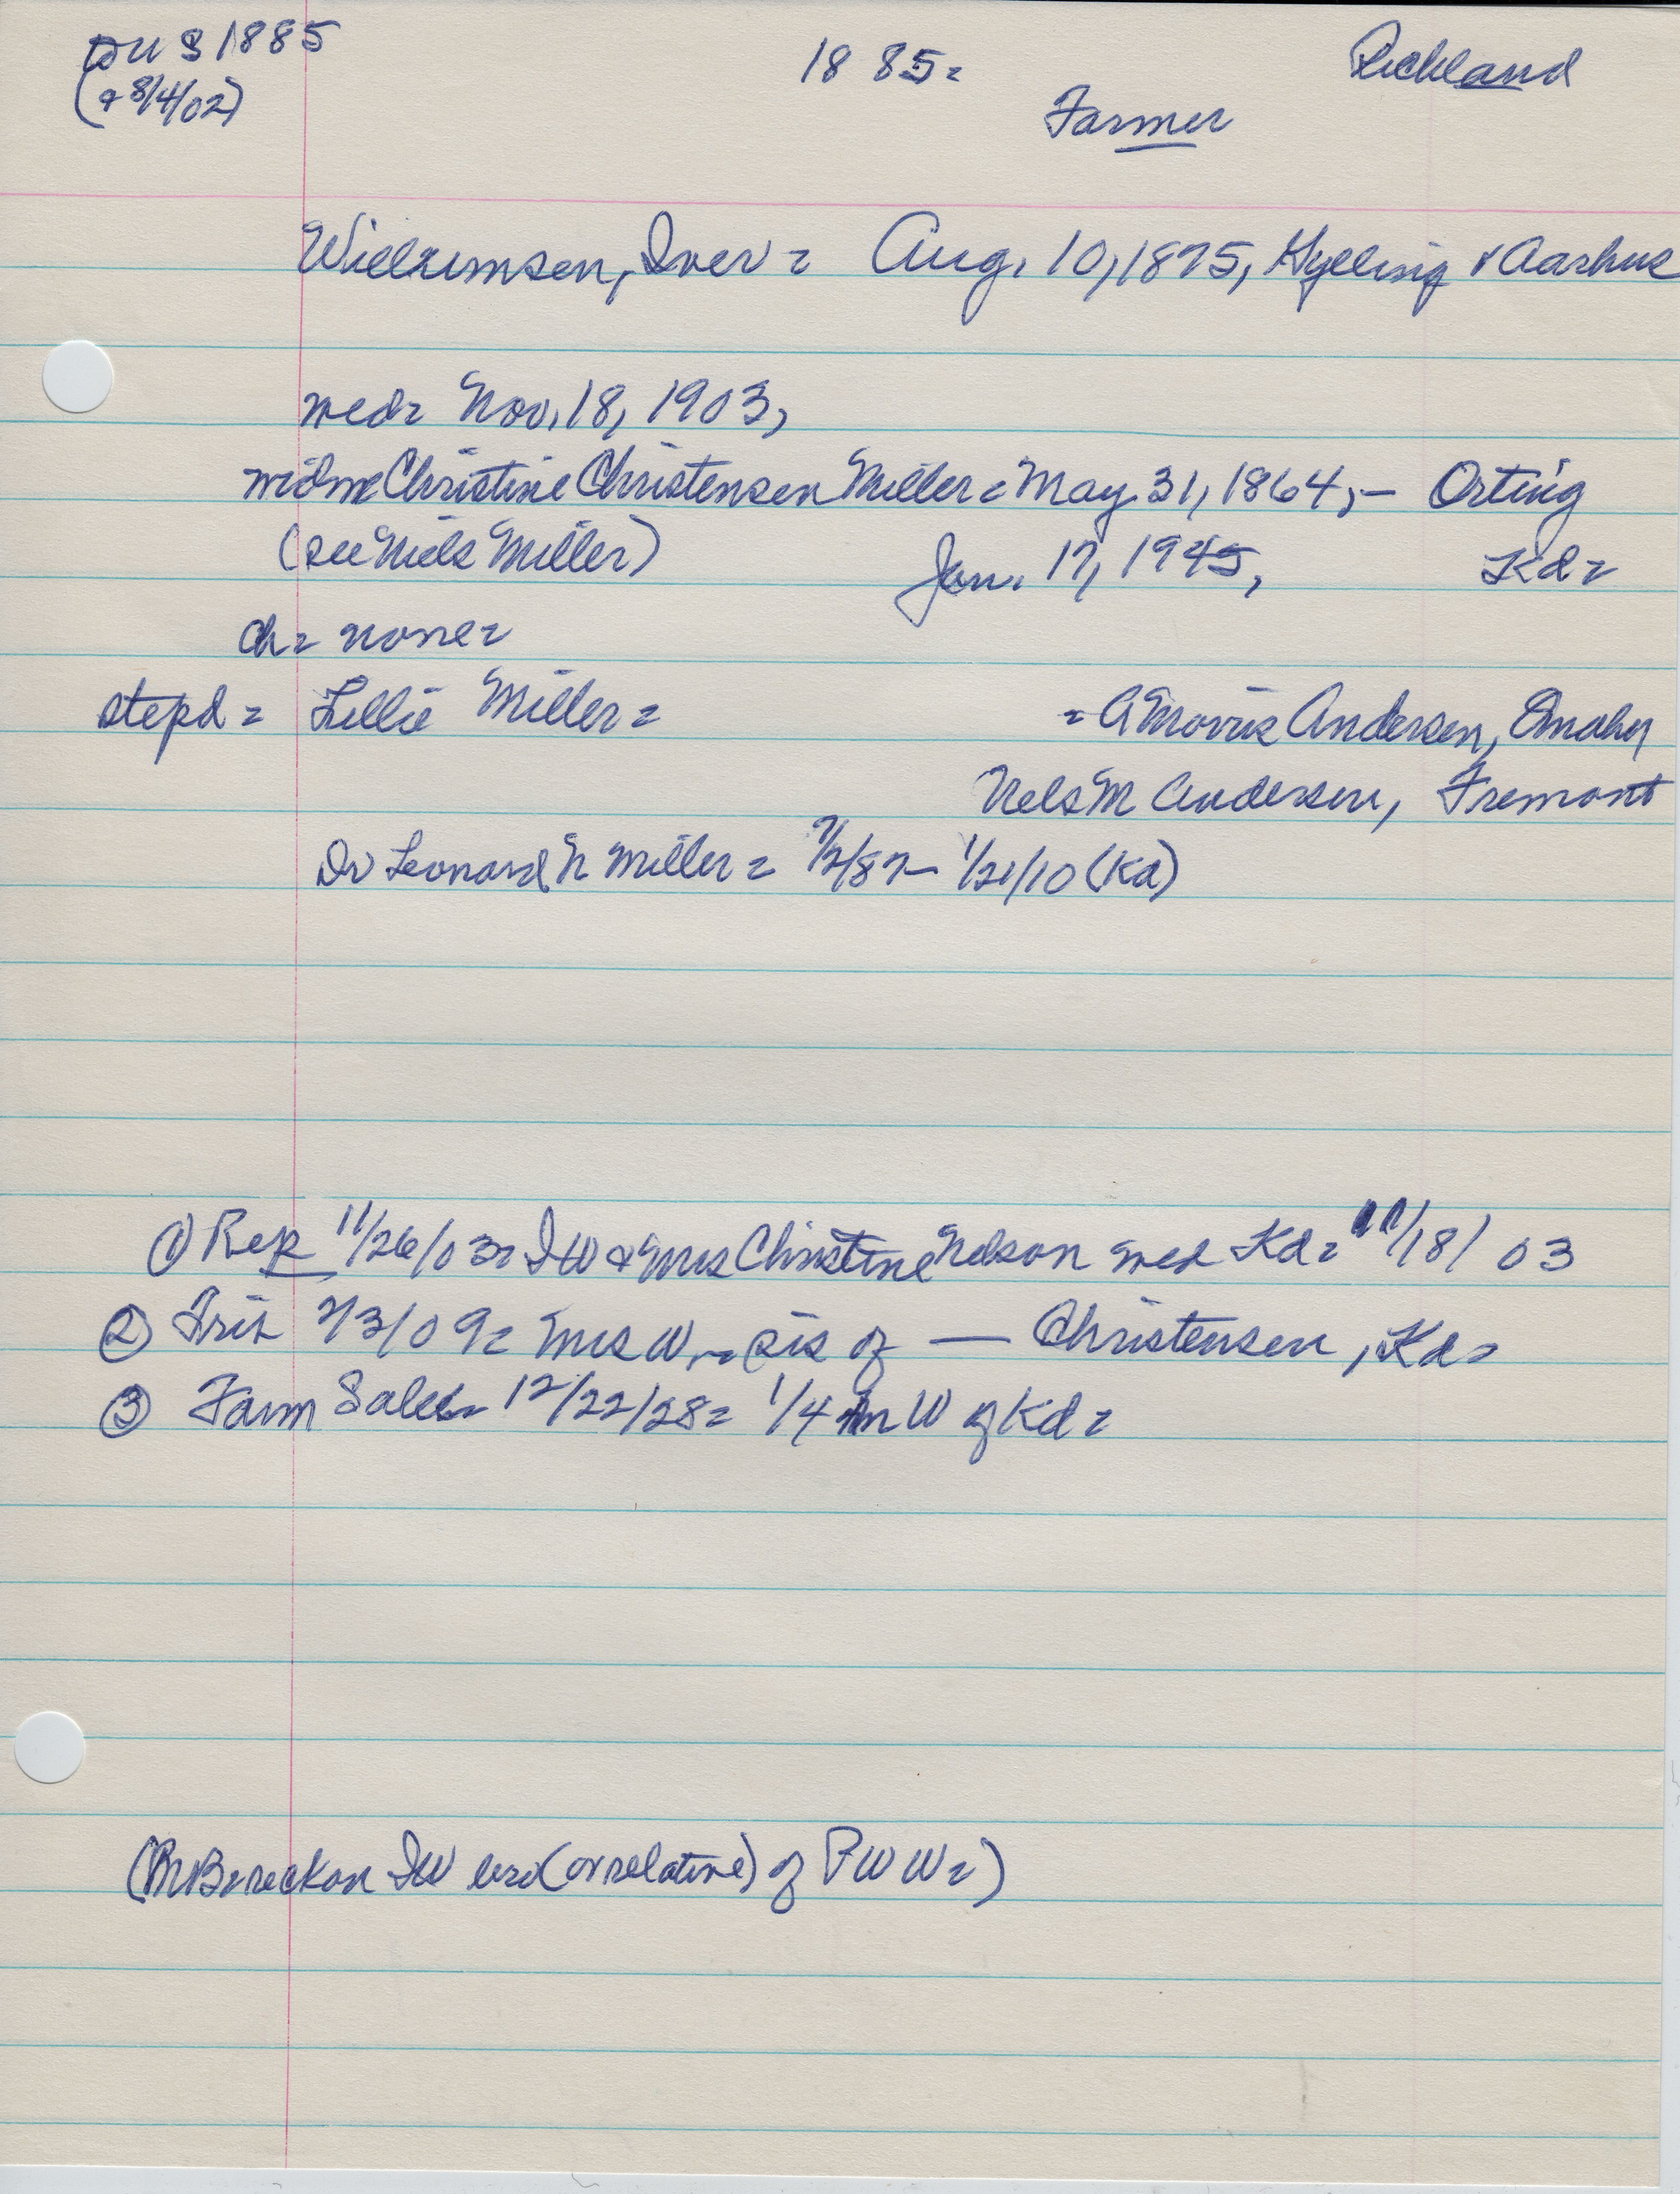 DUS 1885
(+ 8/4/02)
1885 =
Richland
Farmer
Willumsen, Iver = Aug. 10, 1875, Gylling v Aarhus
wed = Nov. 18, 1903,
widow Christine Christensen Miller = May 31, 1864, — Orting
(see Niels Miller) Jan. 17, 1945, Kd =
ch = none =
stepd = Lillie Miller = = A Morris Andersen, Omaha
Nels M Andersen, Fremont
Dr Leonard N Miller = — 1/21/10 (Kd)
① Rep 11/26/03 = IW & Mrs Christine Nelson wed Kd = 11/18/03
② 7/3/09 = Mrs W = sis of — Christensen, Kd =
③ Farm Sale = 12/22/28 = 1/4 m W of Kd =
IW bro (or relative) of P W W = )